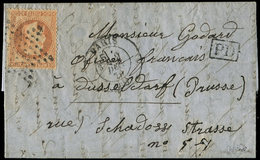 Monsieur Godard
officier français
PARIS
PD
à Dusseldorf (Prusse)
rue Schadow Strasse
n°